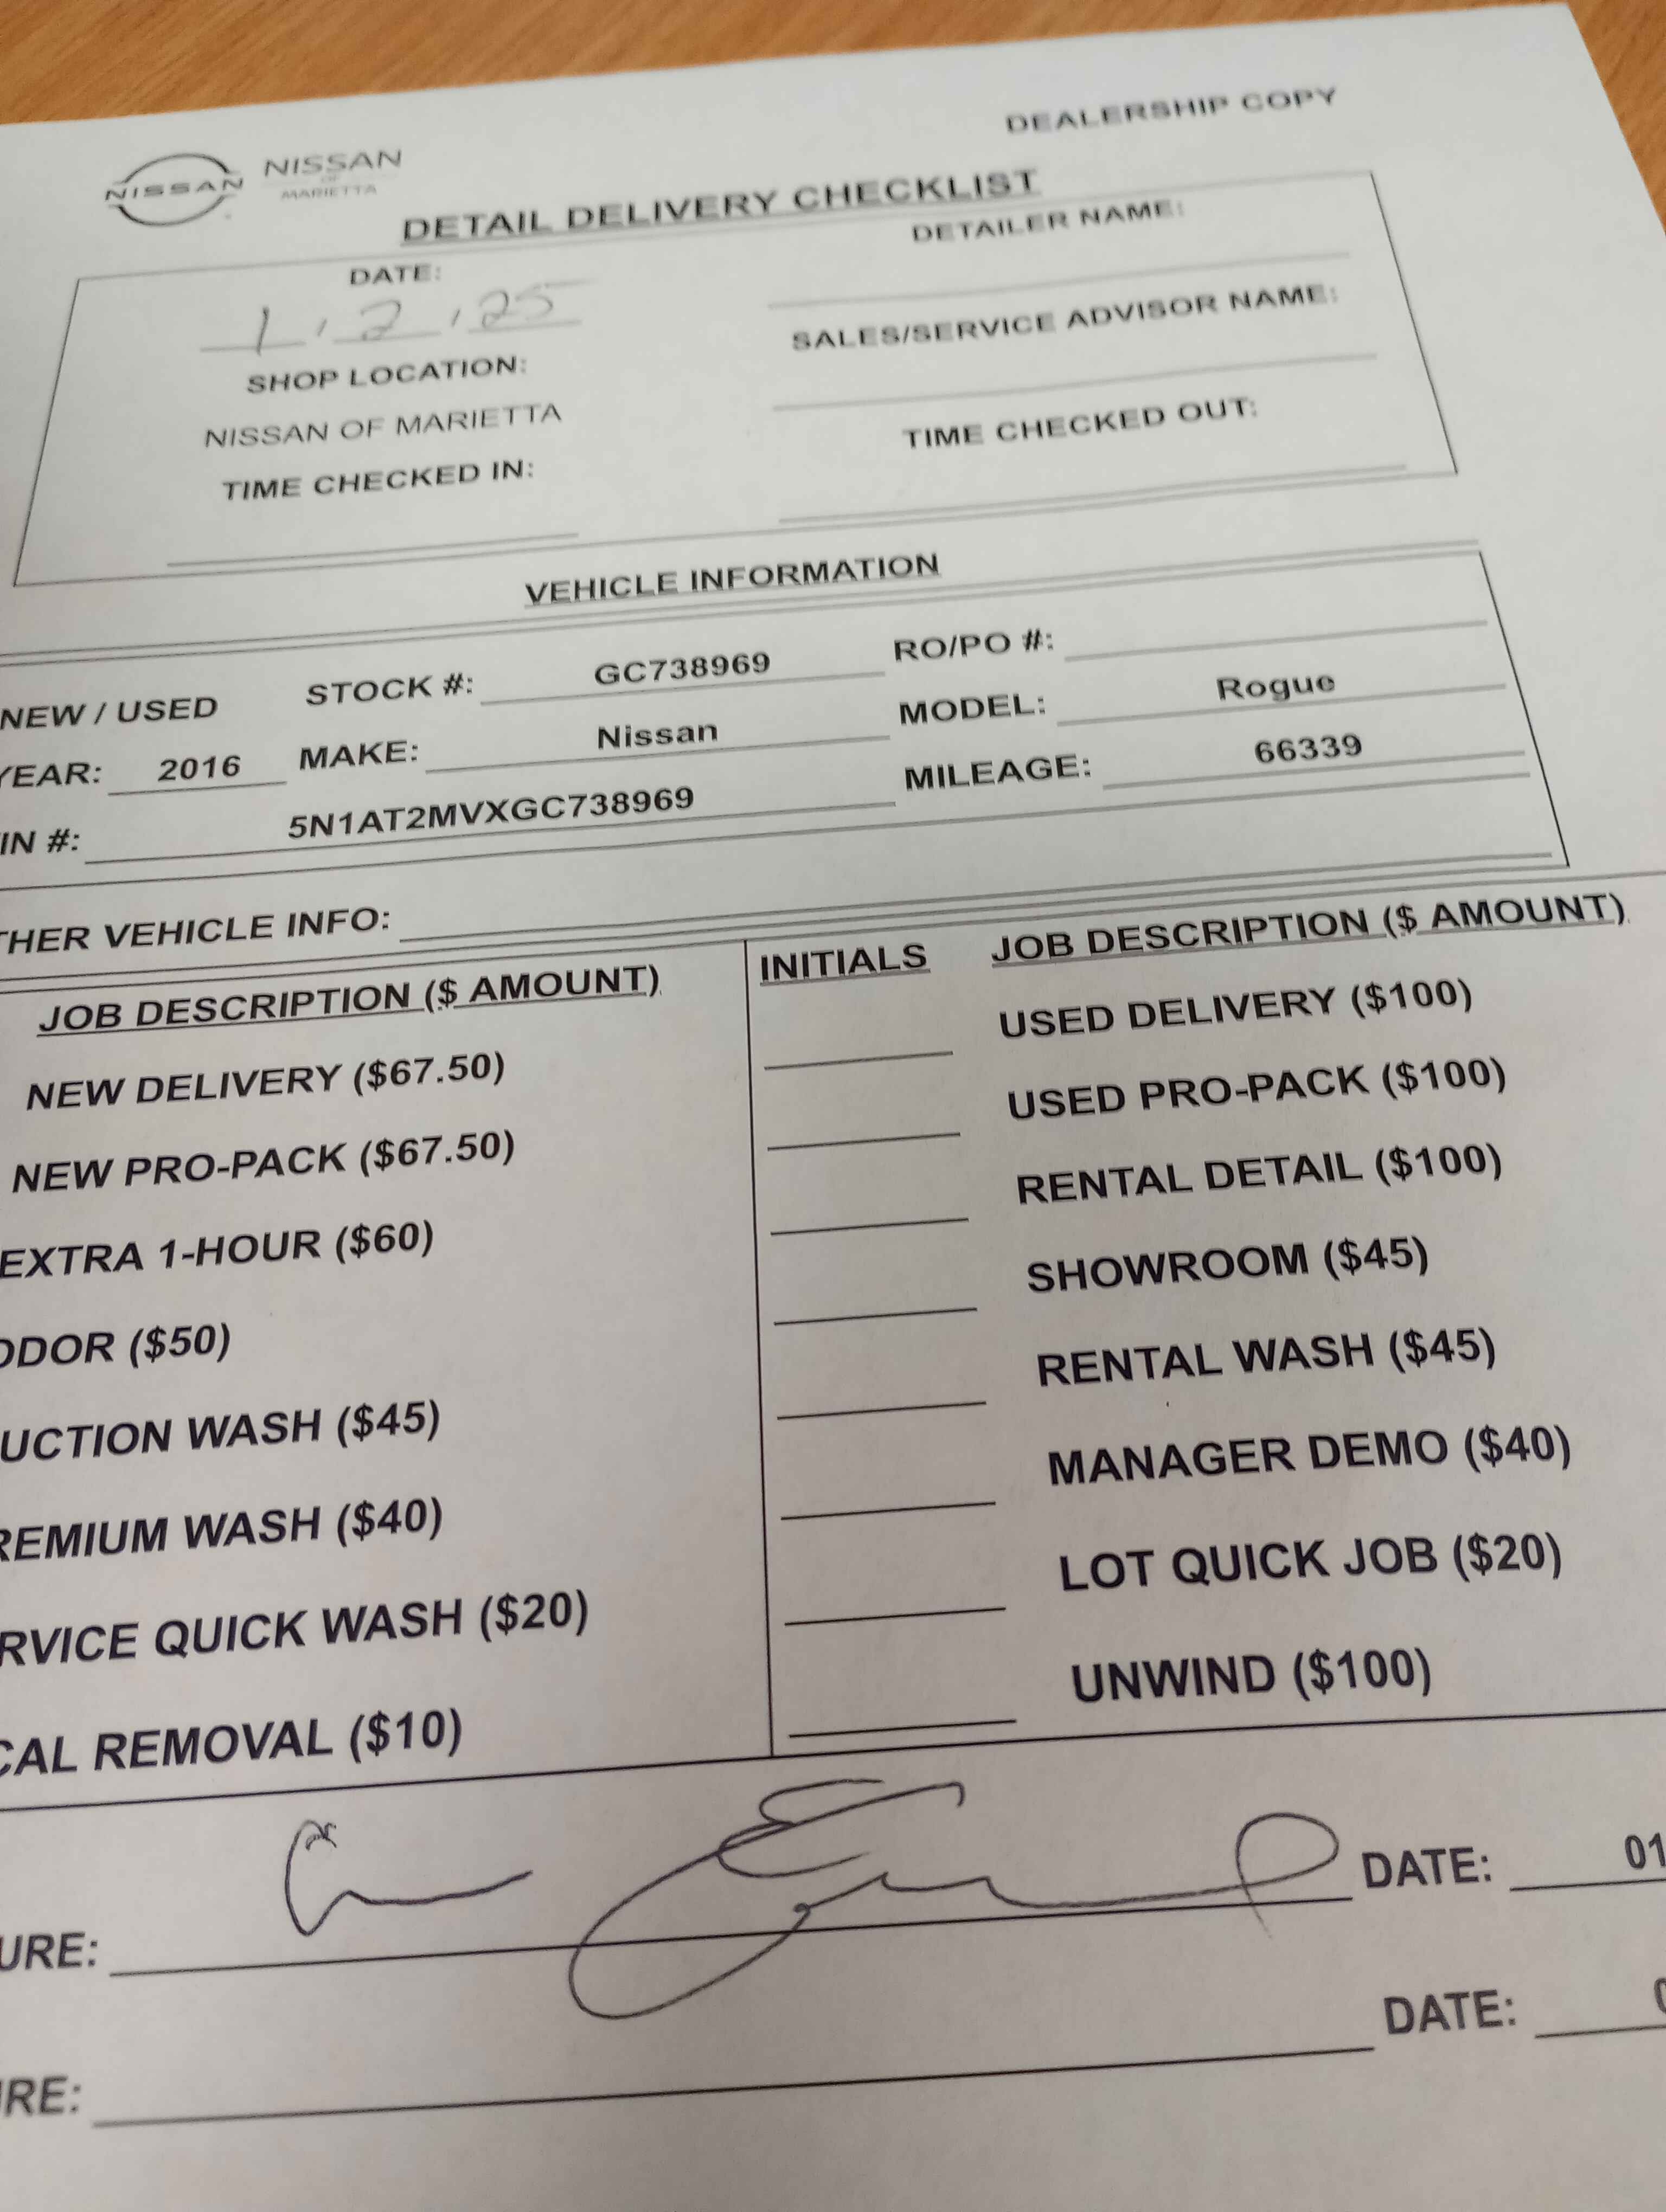 DEALERSHIP COPY
NISSAN NISSAN
OF
MARIETTA
DETAIL DELIVERY CHECKLIST
DATE:
1 , 2 , 25
SHOP LOCATION:
NISSAN OF MARIETTA
TIME CHECKED IN:
DETAILER NAME:
SALES/SERVICE ADVISOR NAME:
TIME CHECKED OUT:
VEHICLE INFORMATION
NEW / USED STOCK #: GC738969 RO/PO #:
YEAR: 2016 MAKE: Nissan MODEL: Rogue
IN #: 5N1AT2MVXGC738969 MILEAGE: 66339
THER VEHICLE INFO:
JOB DESCRIPTION ($ AMOUNT) INITIALS JOB DESCRIPTION ($ AMOUNT)
NEW DELIVERY ($67.50) USED DELIVERY ($100)
NEW PRO-PACK ($67.50) USED PRO-PACK ($100)
EXTRA 1-HOUR ($60) RENTAL DETAIL ($100)
ODOR ($50) SHOWROOM ($45)
UCTION WASH ($45) RENTAL WASH ($45)
REMIUM WASH ($40) MANAGER DEMO ($40)
RVICE QUICK WASH ($20) LOT QUICK JOB ($20)
CAL REMOVAL ($10) UNWIND ($100)
URE: DATE: 01
RE: DATE: 0